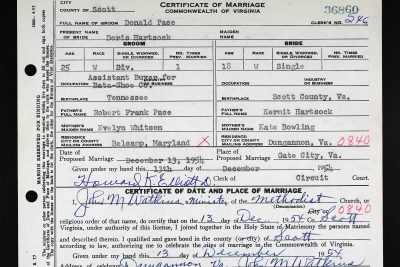 CERTIFICATE OF MARRIAGE
COMMONWEALTH OF VIRGINIA
36860
COUNTY OF Scott
CLERK'S NO. 246
FULL NAME OF GROOM Donald Pace
PRESENT NAME OF BRIDE Doris Hartsock
MAIDEN NAME
GROOM
BRIDE
AGE RACE SINGLE, WIDOWED, OR DIVORCED NO. TIMES PREV. MARRIED
AGE RACE SINGLE, WIDOWED, OR DIVORCED NO. TIMES PREV. MARRIED
25 W Div. 1
18 W Single
OCCUPATION Assistant Buyer for Bata-Shoe Co.
OCCUPATION INDUSTRY OR BUSINESS
BIRTHPLACE Tennessee
BIRTHPLACE Scott County, Va.
FATHER'S FULL NAME Robert Frank Pace
FATHER'S FULL NAME Kermit Hartsock
MOTHER'S MAIDEN NAME Evelyn Whitson
MOTHER'S MAIDEN NAME Kate Bowling
RESIDENCE CITY OR COUNTY MAILING ADDRESS Belcamp, Maryland X
RESIDENCE CITY OR COUNTY MAILING ADDRESS Dungannon, Va. 0840
Date of Proposed Marriage December 13, 1954
Place of Proposed Marriage Gate City, Va.
Given under my hand this 13th day of December 1954
Clerk of Circuit Court
CERTIFICATE OF DATE AND PLACE OF MARRIAGE
I, John M Watkins, Minister of the Methodist Church, 0840
religious order of that name, do certify that on the 13 day of Dec 1954
Virginia, under authority of this license, I joined together in the Holy State of Matrimony the persons
named and described therein. I qualified and gave bond in the county (or city) of Scott
according to law, authorizing me to celebrate the rites of marriage in the Commonwealth of Virginia.
Given under my hand this 13 day of December 1954
Dungannon Va John M Watkins
MARGIN RESERVED FOR BINDING